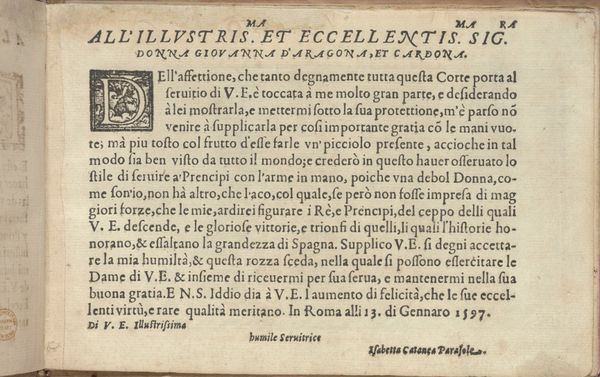 ALL'ILLVSTRIS.MA ET ECCELLENTIS.MA SIG.RA
DONNA GIOVANNA D'ARAGONA, ET CARDONA.
DEll'affettione, che tanto degnamente tutta questa Corte porta al
seruitio di V. E. è toccata à me molto gran parte, e desiderando
à lei mostrarla, e mettermi sotto la sua protettione, m'è parso nō
venire à supplicarla per cosi importante gratia cō le mani vuo-
te; mà piu tosto col frutto d'esse farle vn' picciolo presente, accioche in tal
modo sia ben visto da tutto il mondo; e crederò in questo hauer osseruato lo
stile di seruire a' Prencipi con l'arme in mano, poiche vna debol Donna, co-
me son'io, non hà altro, che l'aco, col quale, se però non fosse impresa di mag
giori forze, che le mie, ardirei figurare i Rè, e Prencipi, del ceppo delli quali
V. E. descende, e le gloriose vittorie, e trionfi di quelli, li quali l'historie ho-
norano, & essaltano la grandezza di Spagna. Supplico V. E. si degni accetta-
re la mia humiltà, & questa rozza sceda, nella quale si possono essercitare le
Dame di V. E. & insieme di riceuermi per sua serua, e mantenermi nella sua
buona gratia. E N. S. Iddio dia à V. E. l aumento di felicità, che le sue eccel-
lenti virtù, e rare qualità meritano. In Roma alli 13. di Gennaro 1597.
Di V. E. Illustrissima
humile Seruitrice
Isabetta Catanea Parasole.